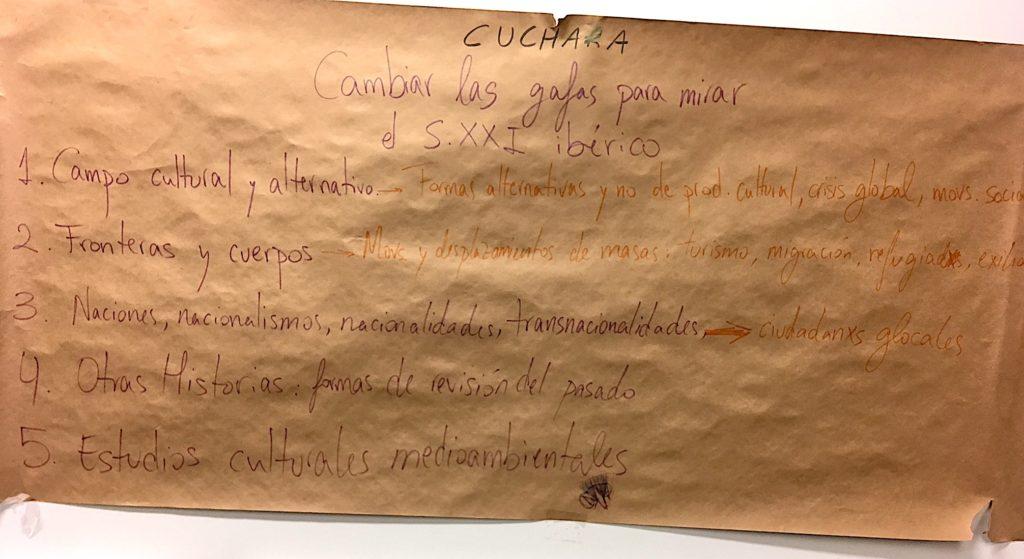 CUCHARA
Cambiar las gafas para mirar
el S.XXI ibérico
1. Campo cultural y alternativo → Formas alternativas y no de prod. cultural, crisis global, movs. socia
2. Fronteras y cuerpos → Movs y desplazamientos de masas: turismo, migración, refugiadxs, exilio
3. Naciones, nacionalismos, nacionalidades, transnacionalidades, → ciudadanxs glocales
4. Otras Historias: formas de revisión del pasado
5. Estudios culturales medioambientales